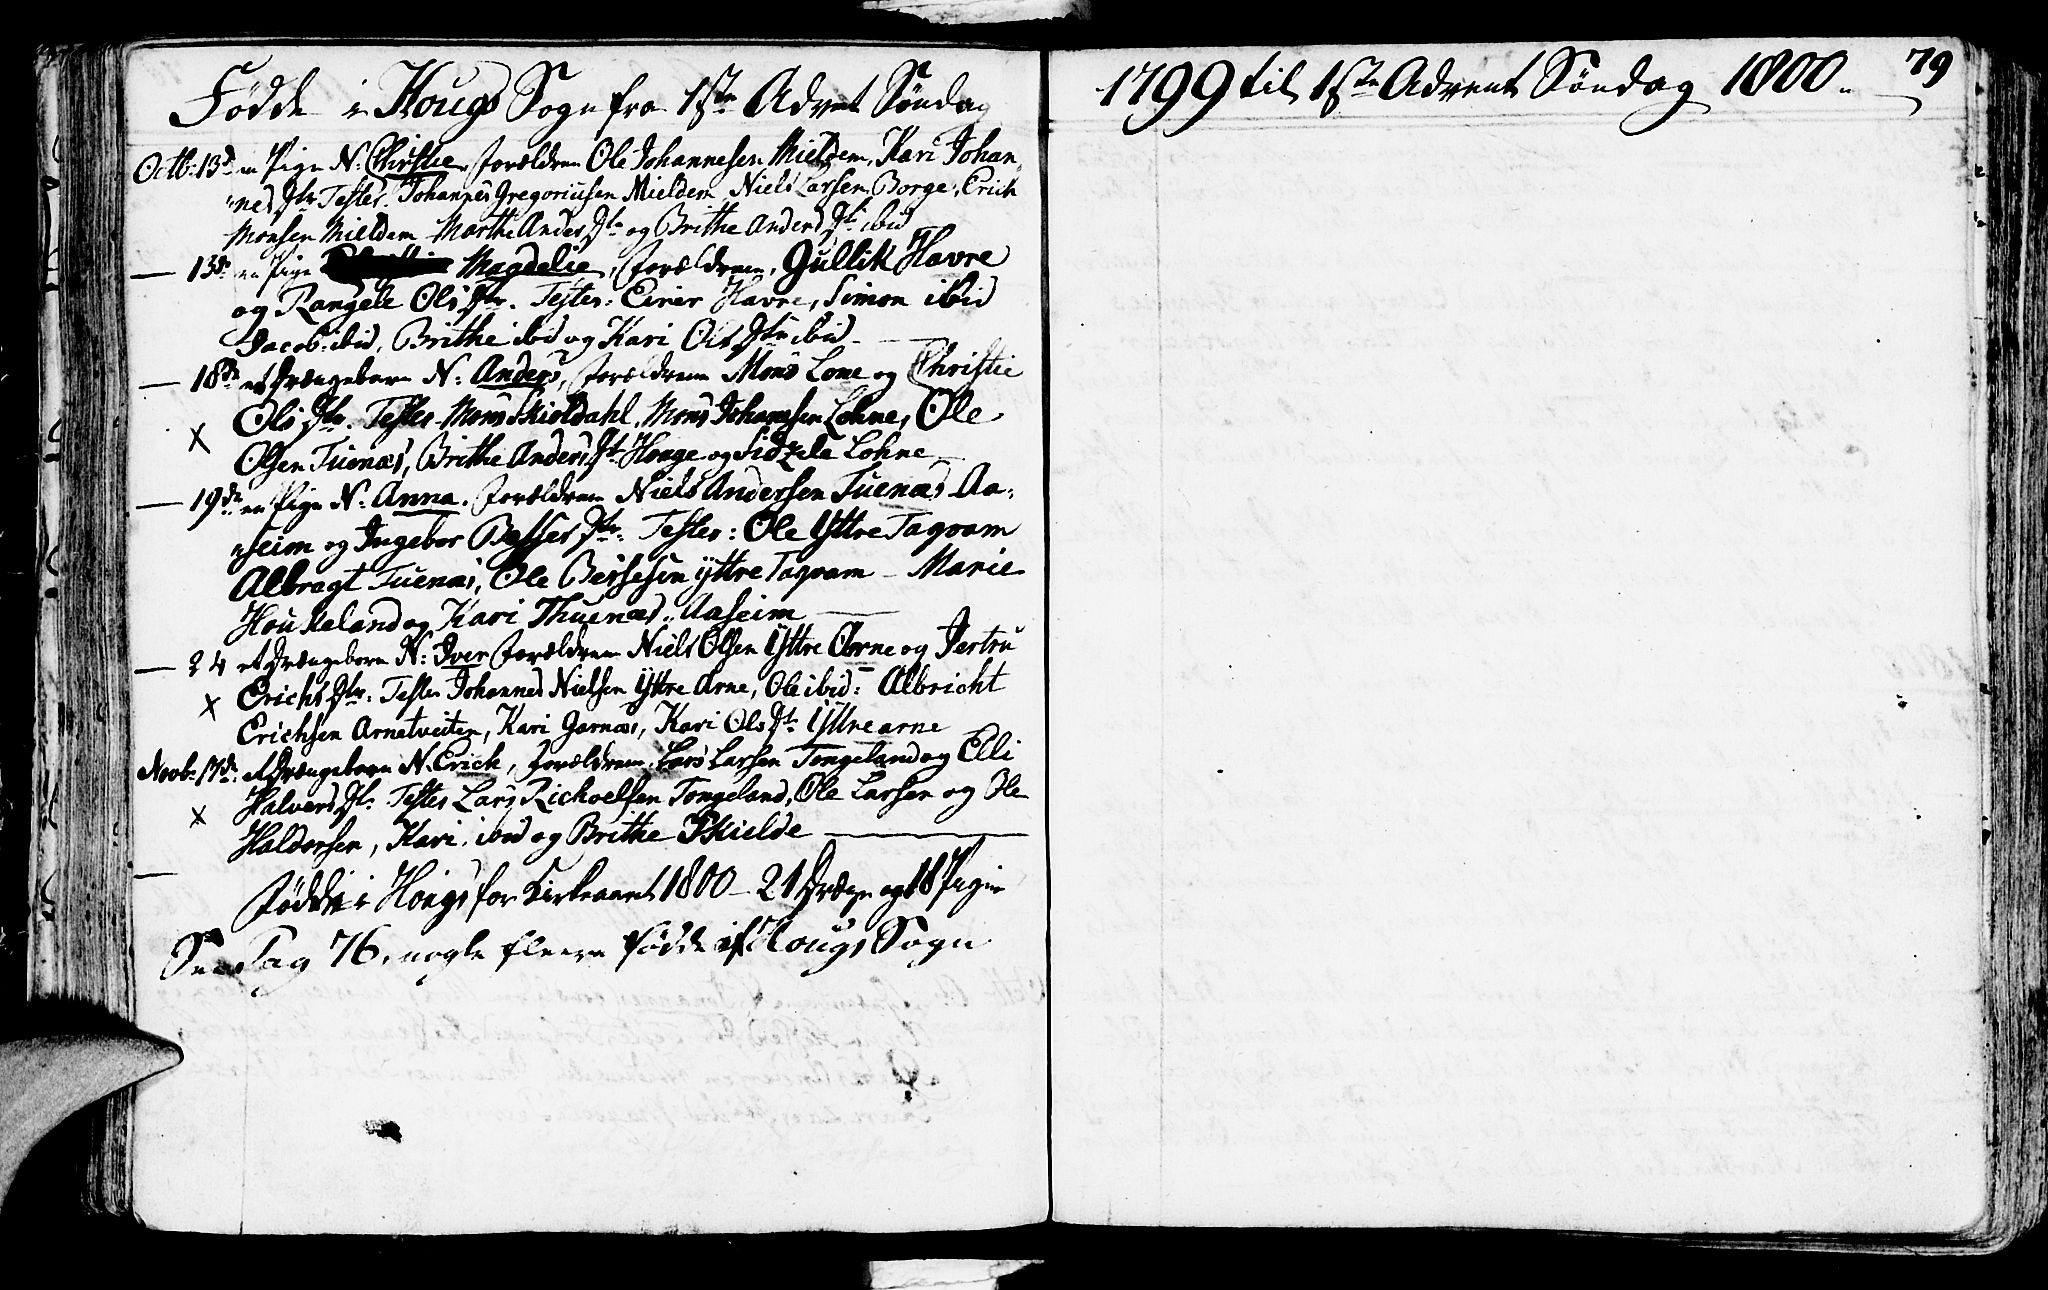 Fødde i Hougs Sogn fra 1ste Advent Søndag
1799 til 1ste Advent Søndag 1800. 79
Octb: 13d en Pige N: Christie, forældrene Ole Johannesen Mieldem, Kari Johan-
nes Dtr Testes. Johannes Gregoriusen Mieldem, Niels Larsen Borge, Erich
Monsen Mieldem Marthe Anders Dtr og Brithe Anders Dtr ibid
— 13de en Pige Magdelie, forældrene, Gullik Havre
og Rangele Ols Dtr. Testes: Einer Havre, Simon ibid
Jacob ibid, Brithe ibid og Kari Ols Dtr ibid —
— 18de et Drængebarn N: Anders, forældrene Mons Lone og Christie
Ols Dtr. Testes Mons Skioldahl, Mons Johannesen Lohne, Ole
X Olsen Tuenæs, Brithe Anders Dt Houge og Sidzela Lohne —
— 19de en Pige N: Anna, forældrene Niels Andersen Tuenæs Aa-
seim og Ingebor Besses Dtr: Testes: Ole Yttre Taqvam
Albragt Tuenæs, Ole Bersesen yttre Taqvam — Marie
Houkeland og Kari Thuenæs Aaseim —
— 24 et Drængebarn N: Iver forældrene Niels Olsen Yttre Arne og Jertru
X Erichs Dtr: Testes Johannes Nielsen Yttre Arne, Ole ibid: Albricht
Erichsen Arnetveiten, Kari Garnæs, Kari Ols Dt: Yttre arne
Novb: 17d: et Drængebarn N. Erich, forældrene Lars Larsen Tongeland og Elli
X Halvers Dtr. Testes Lars Richoelsen Tongeland, Ole Larsen og Ole
Haldorsen, Kari ibid og Brithe Skielde —
— Fødde i Hougs for Kirkeaaret 1800 — 21 Dræge og 18 Pigier
See Pag 76, nogle fleere fødde i Hougs Sogn